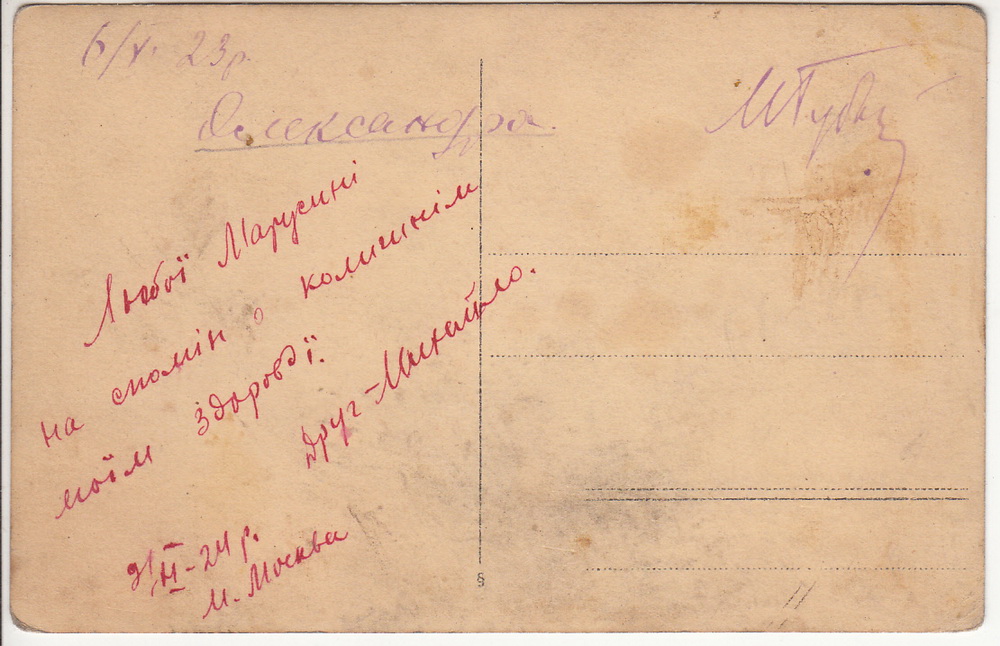 6/V. 23р.
Олександра.
Любої Марусині
на спомин о колишнім
моїм здоров'ї.
Друг - Михайло.
9/II - 24 р.
м. Москва
§